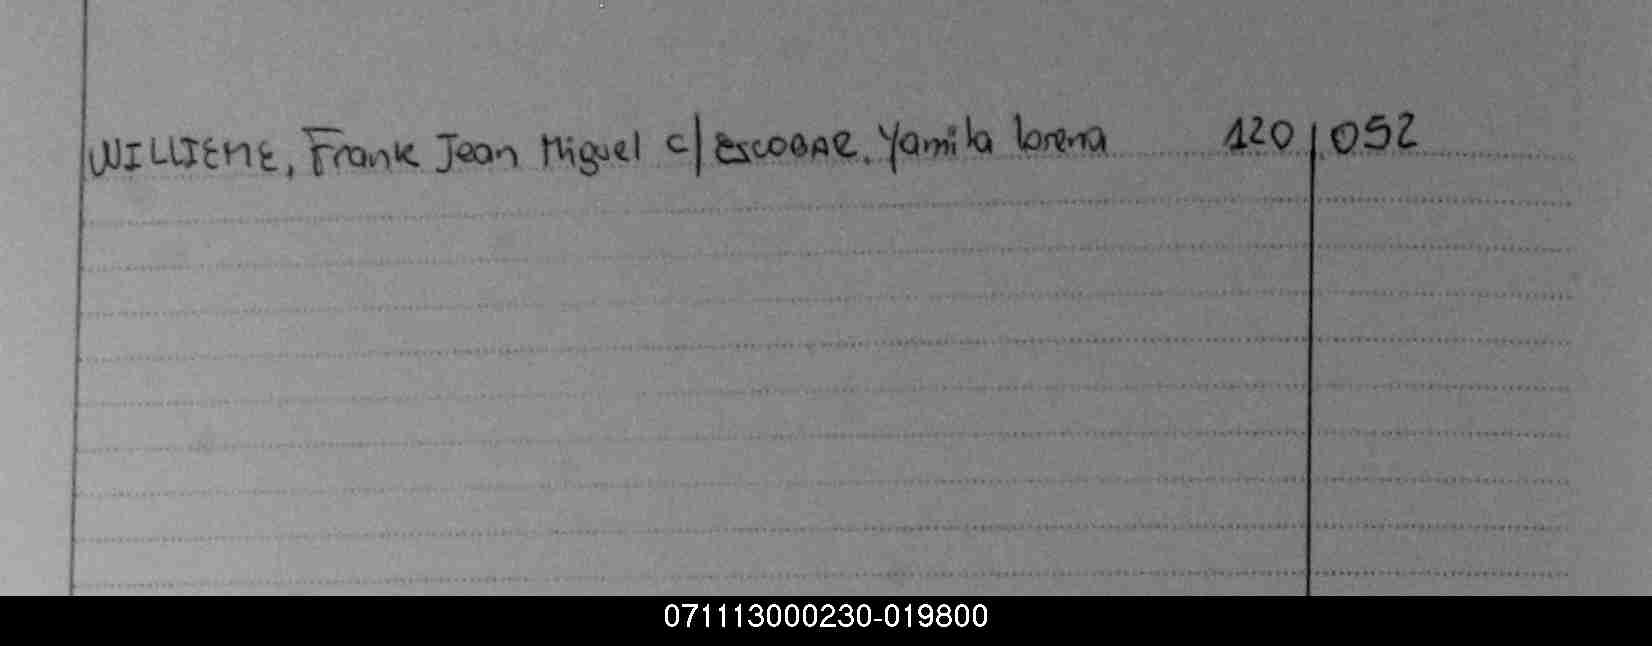 WILLIEME, Frank Jean Miguel c/ ESCOBAR, Yamila Lorena 120 052
071113000230-019800